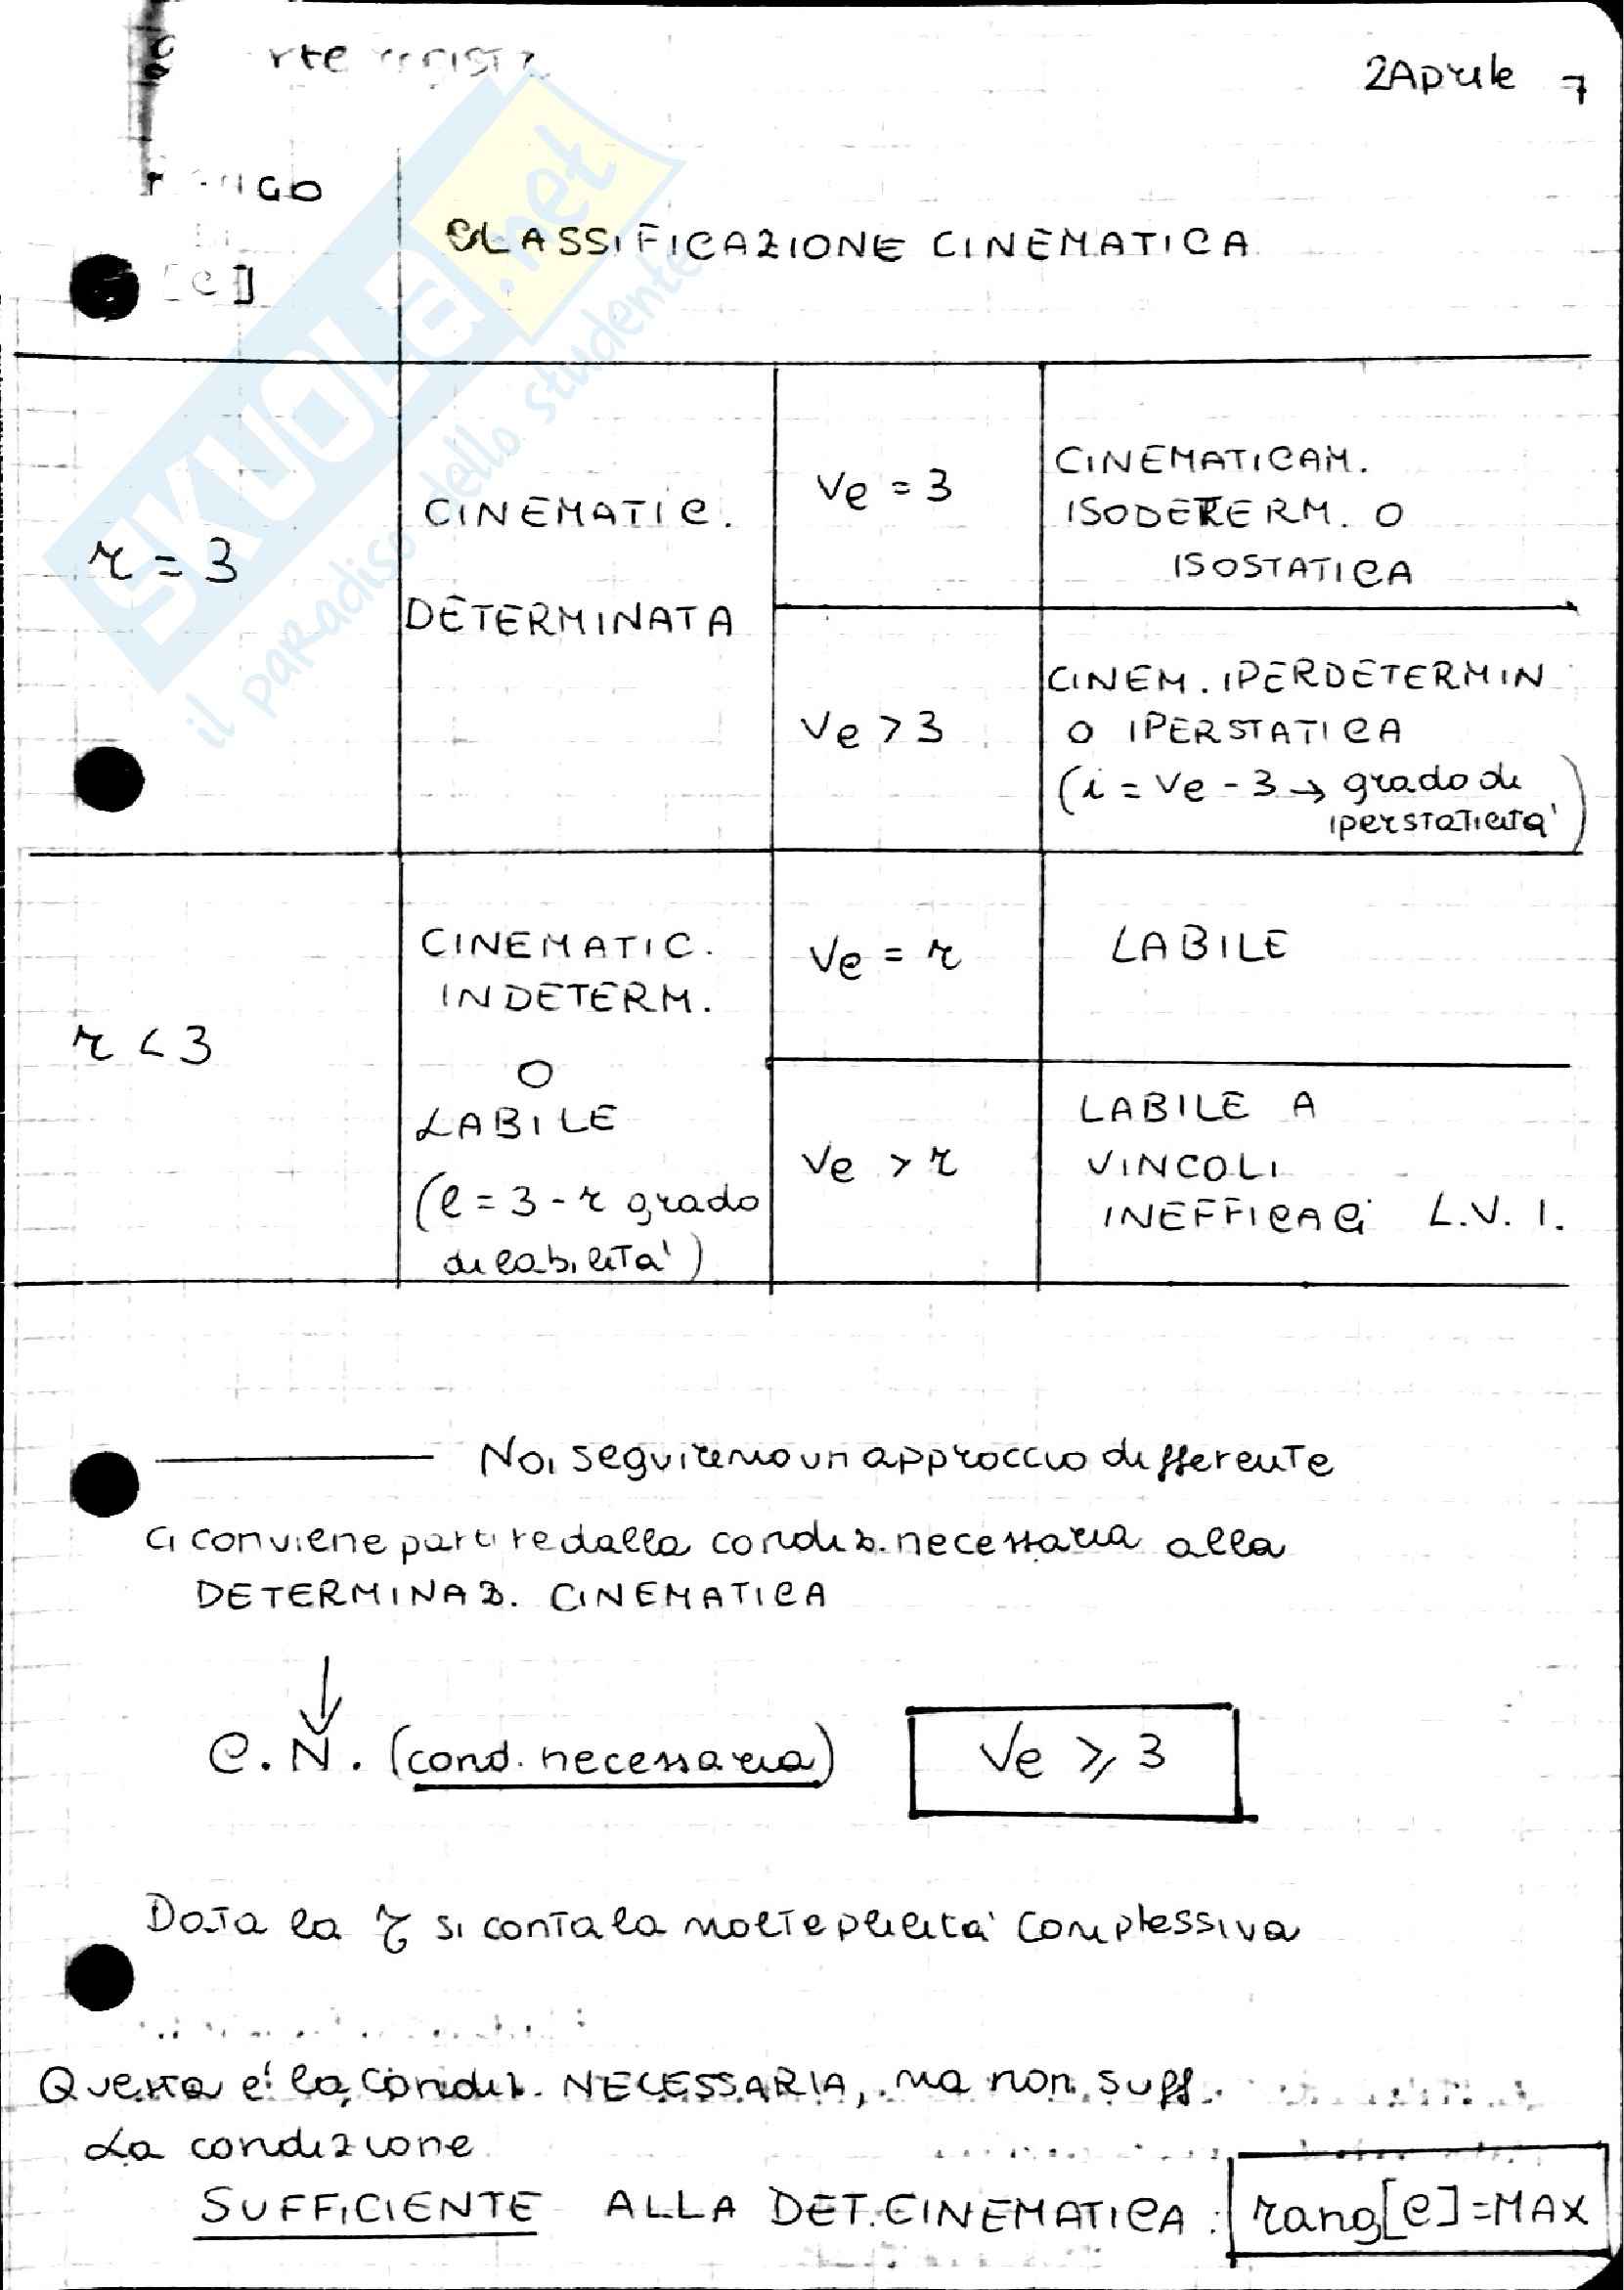 2 Aprile 7
[C]
CLASSIFICAZIONE CINEMATICA
SKUOLA.net
il paradiso dello studente
r = 3
CINEMATIC.
DETERMINATA
Ve = 3
CINEMATICAM.
ISODETERERM. O
ISOSTATICA
Ve > 3
CINEM. IPERDETERMIN
O IPERSTATICA
(i = Ve - 3 → grado di
iperstaticità)
r < 3
CINEMATIC.
INDETERM.
O
LABILE
(l = 3 - r grado
di labilità)
Ve = r
LABILE
Ve > r
LABILE A
VINCOLI
INEFFICACI L.V.I.
Noi seguiremo un approccio differente
Ci conviene partire dalla condiz. necessaria alla
DETERMINAZ. CINEMATICA
↓
C.N. (cond. necessaria) Ve ⩾ 3
Data la si conta la molteplicità complessiva
Questa è la condiz. NECESSARIA, ma non suff.
La condizione
SUFFICIENTE ALLA DET. CINEMATICA: rang[C]=MAX